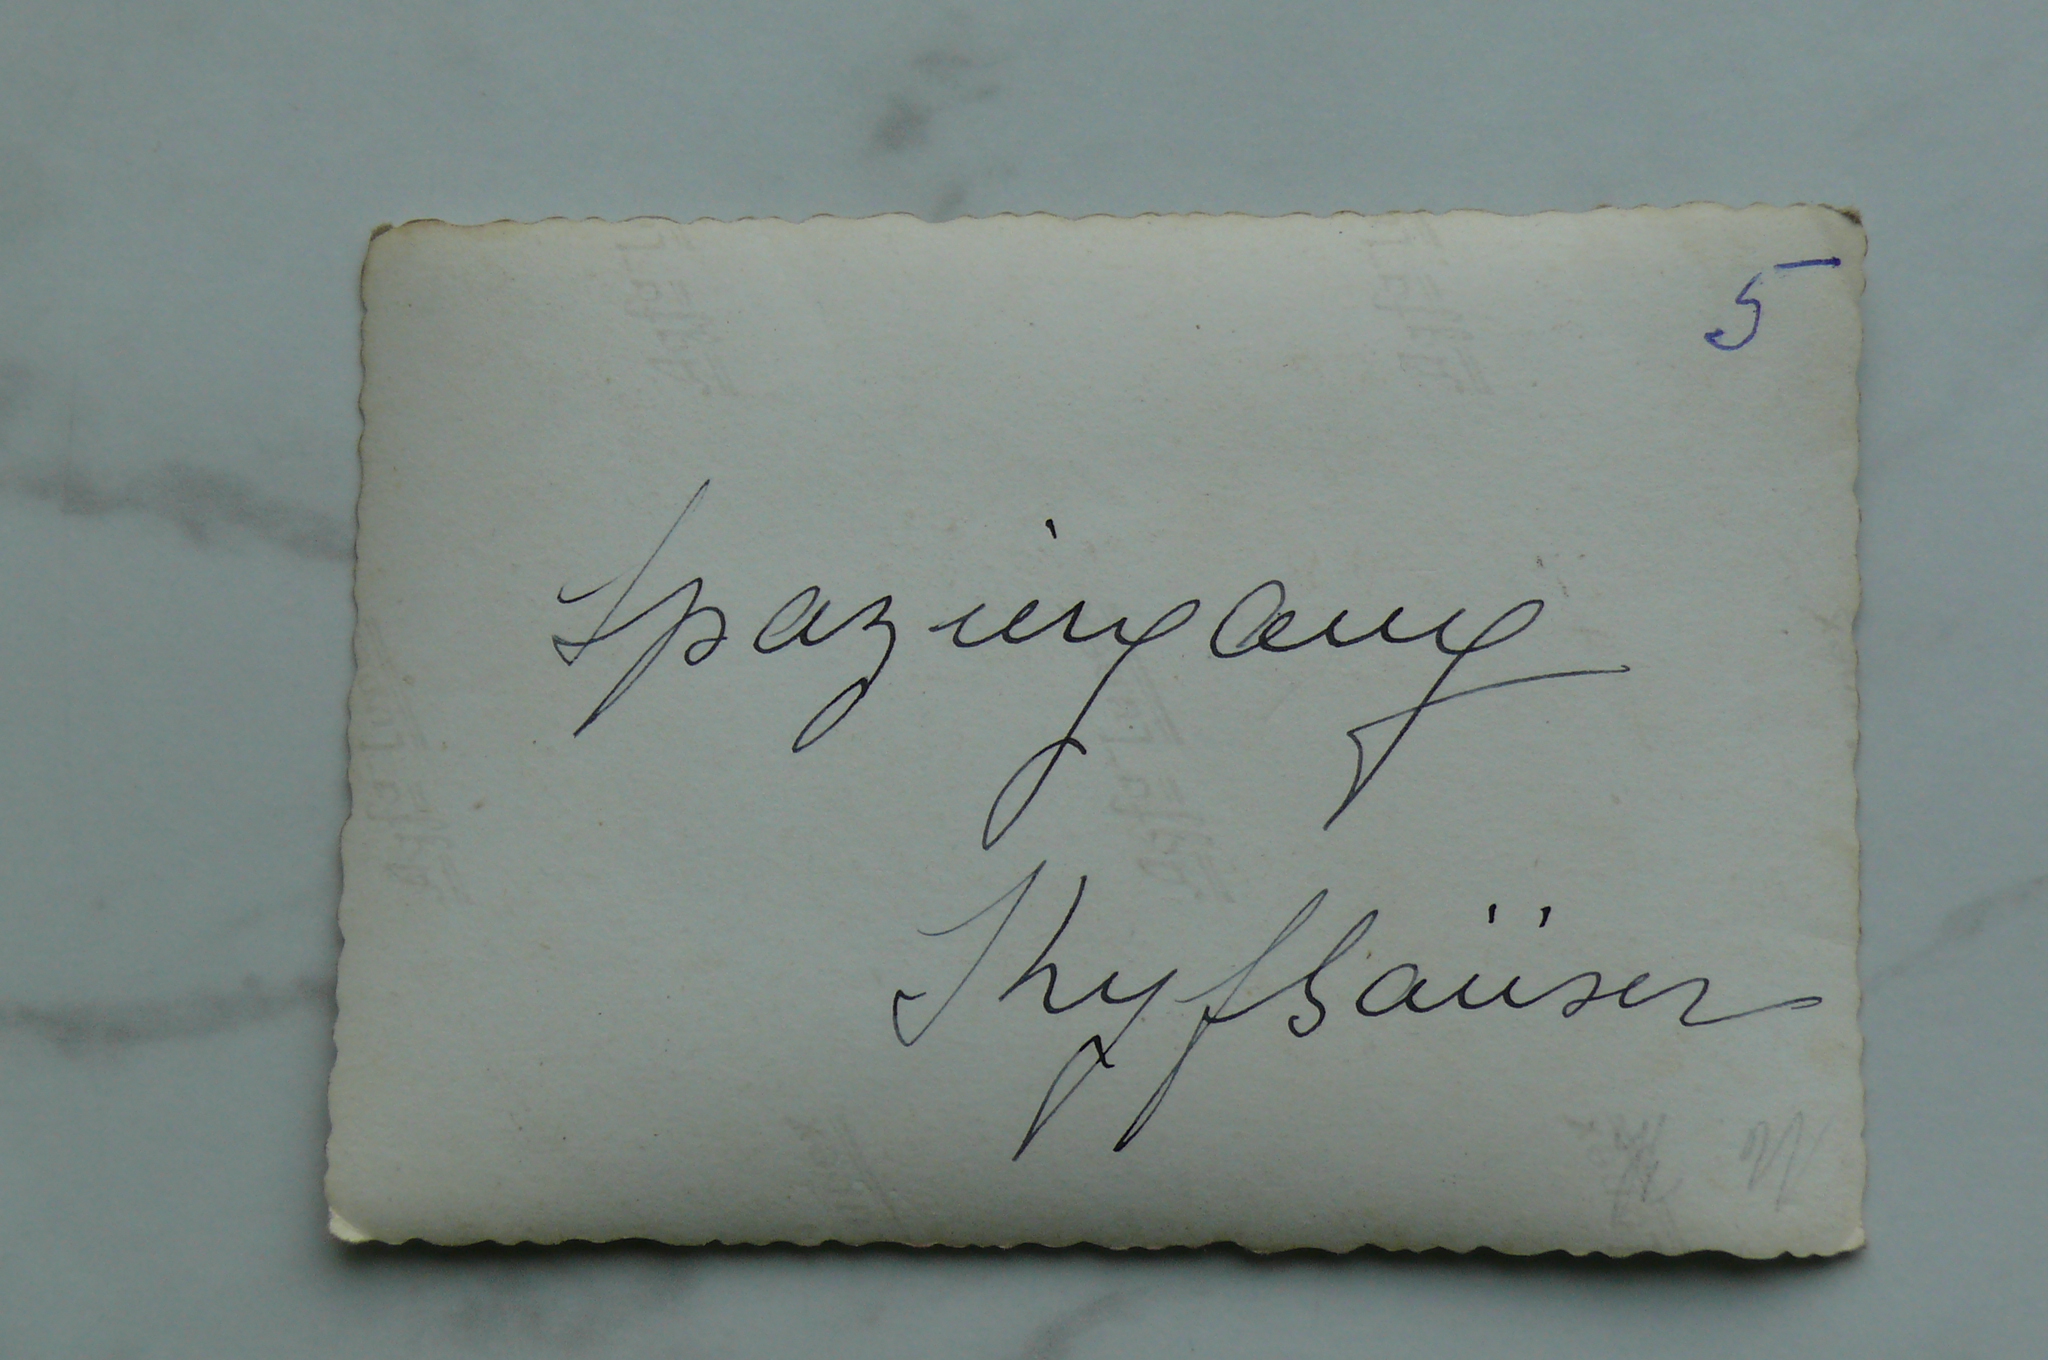 5
Spaziergang
Kyffhäuser